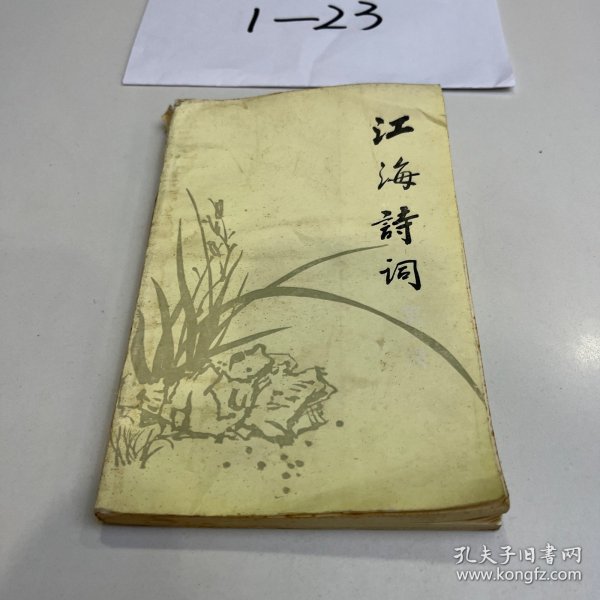 1—23
江海詩词
孔夫子旧书网
www.kongfz.com